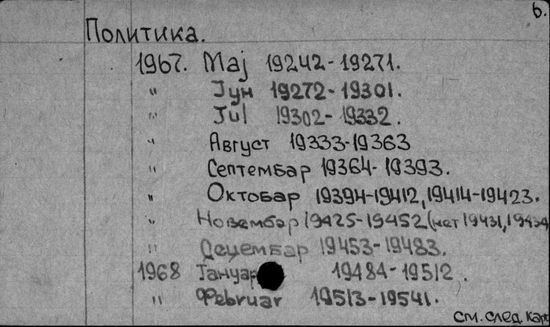 6.
Политика.
1967. Мај 19242-19271.
" Јун 19272-19301.
" Јul 19302-19332.
" Август 19333-19363
" Септембар 19364-19393.
" Октобар 19394-19412, 19414-19423.
" Новембар 19425-19452 (нет 19431, 19434
" Децембар 19453-19483.
1968 Јануар 19484-19512.
" Фebruar 19513-19541.
см. след. карт